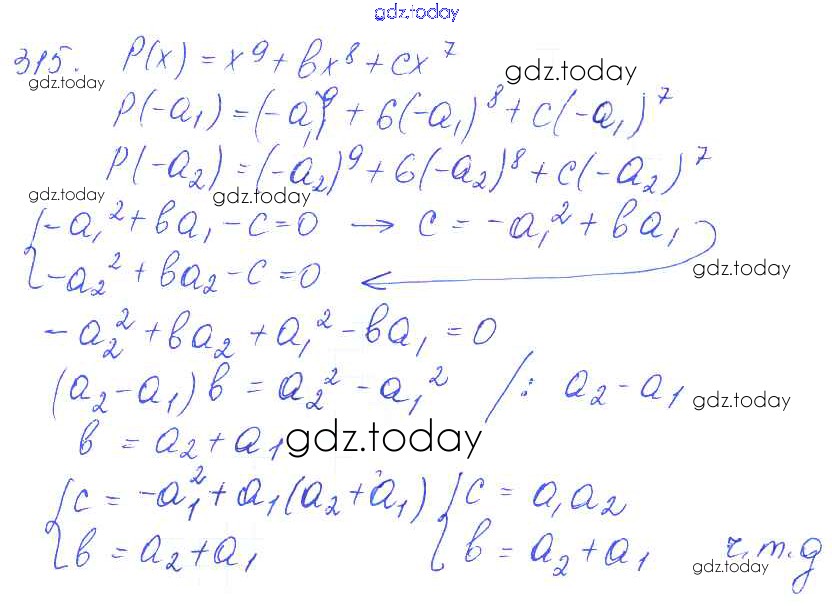 gdz.today
315. P(x) = x⁹ + bx⁸ + cx⁷
gdz.today gdz.today
P(-a₁) = (-a₁)⁹ + b(-a₁)⁸ + c(-a₁)⁷
P(-a₂) = (-a₂)⁹ + b(-a₂)⁸ + c(-a₂)⁷
gdz.today gdz.today
{ -a₁² + ba₁ - c = 0 → c = -a₁² + ba₁
gdz.today
-a₂² + ba₂ - c = 0 ←
-a₂² + ba₂ + a₁² - ba₁ = 0
(a₂ - a₁) b = a₂² - a₁² / : a₂ - a₁ gdz.today
b = a₂ + a₁ gdz.today
{ c = -a₁² + a₁(a₂ + a₁) { c = a₁a₂
b = a₂ + a₁ b = a₂ + a₁ ч.т.д
gdz.today